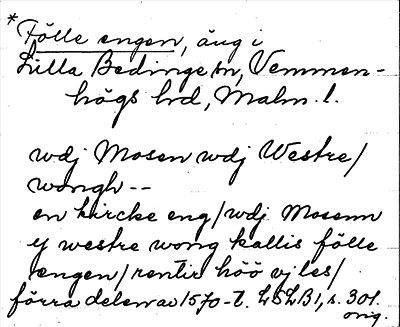 *Fölle engen, äng i
Lilla Beddinge sn, Vemmen-
högs hd, Malm. l.
wdj Mosen wdj Westre/
wongh--
en kircke eng/wdj Mosenn
y westre wong kallis fölle
engen/rentir höö vj les/
förra delen av 1570-t. LSLB1, s. 301.
orig.